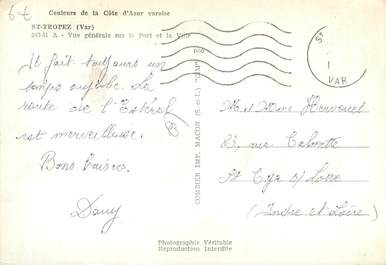 6€
Couleurs de la Côte d'Azur varoise
ST-TROPEZ (Var)
A - Vue générale sur le Port et la Ville
Il fait toujours un
temps superbe. La
route de l'Estérel
est merveilleuse.
Bons baisers.
Dany
COMBIER IMP. MACON (S.-et-L.)
ST
VAR
M. et Mme Hervouet
rue
St Cyr s/ Loire
(Indre et Loire)
Photographie Véritable
Reproduction Interdite